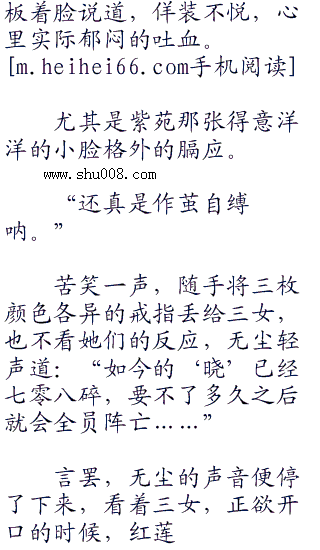 板着脸说道，佯装不悦，心
里实际郁闷的吐血。
[m.heihei66.com手机阅读]
尤其是紫苑那张得意洋
洋的小脸格外的膈应。
www.shu008.com
“还真是作茧自缚
呐。”
苦笑一声，随手将三枚
颜色各异的戒指丢给三女，
也不看她们的反应，无尘轻
声道：“如今的‘晓’已经
七零八碎，要不了多久之后
就会全员阵亡……”
言罢，无尘的声音便停
了下来，看着三女，正欲开
口的时候，红莲